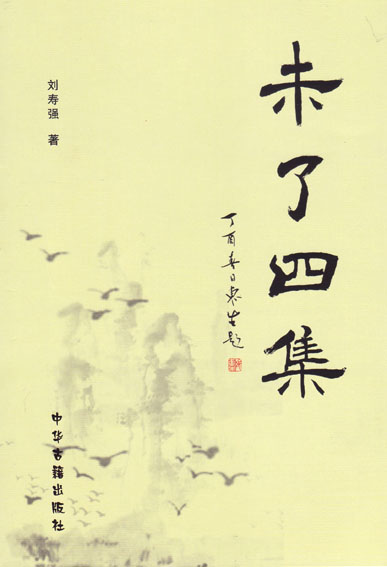 未了四集
丁酉春日崇生题
刘寿强 著
中华古籍出版社